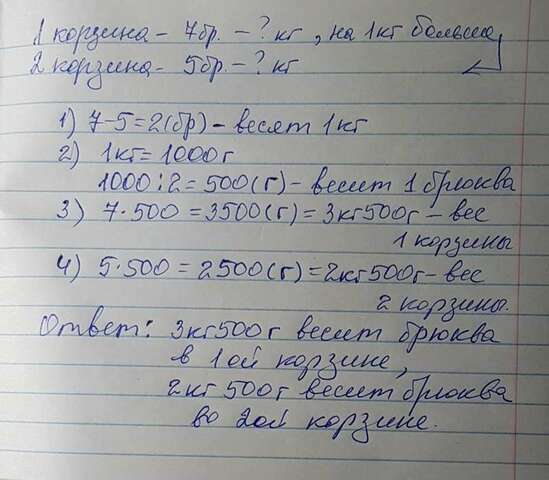 1 корзина – 7бр. – ? кг, на 1кг больше
2 корзина – 5бр. – ? кг
1) 7-5=2(бр) – весят 1кг
2) 1кг=1000г
1000:2=500(г) – весит 1 брюква
3) 7·500=3500(г)=3кг500г – вес
1 корзины
4) 5·500=2500(г)=2кг500г – вес
2 корзины.
Ответ: 3кг500г весит брюква
в 1ой корзине,
2кг500г весит брюква
во 2ой корзине.